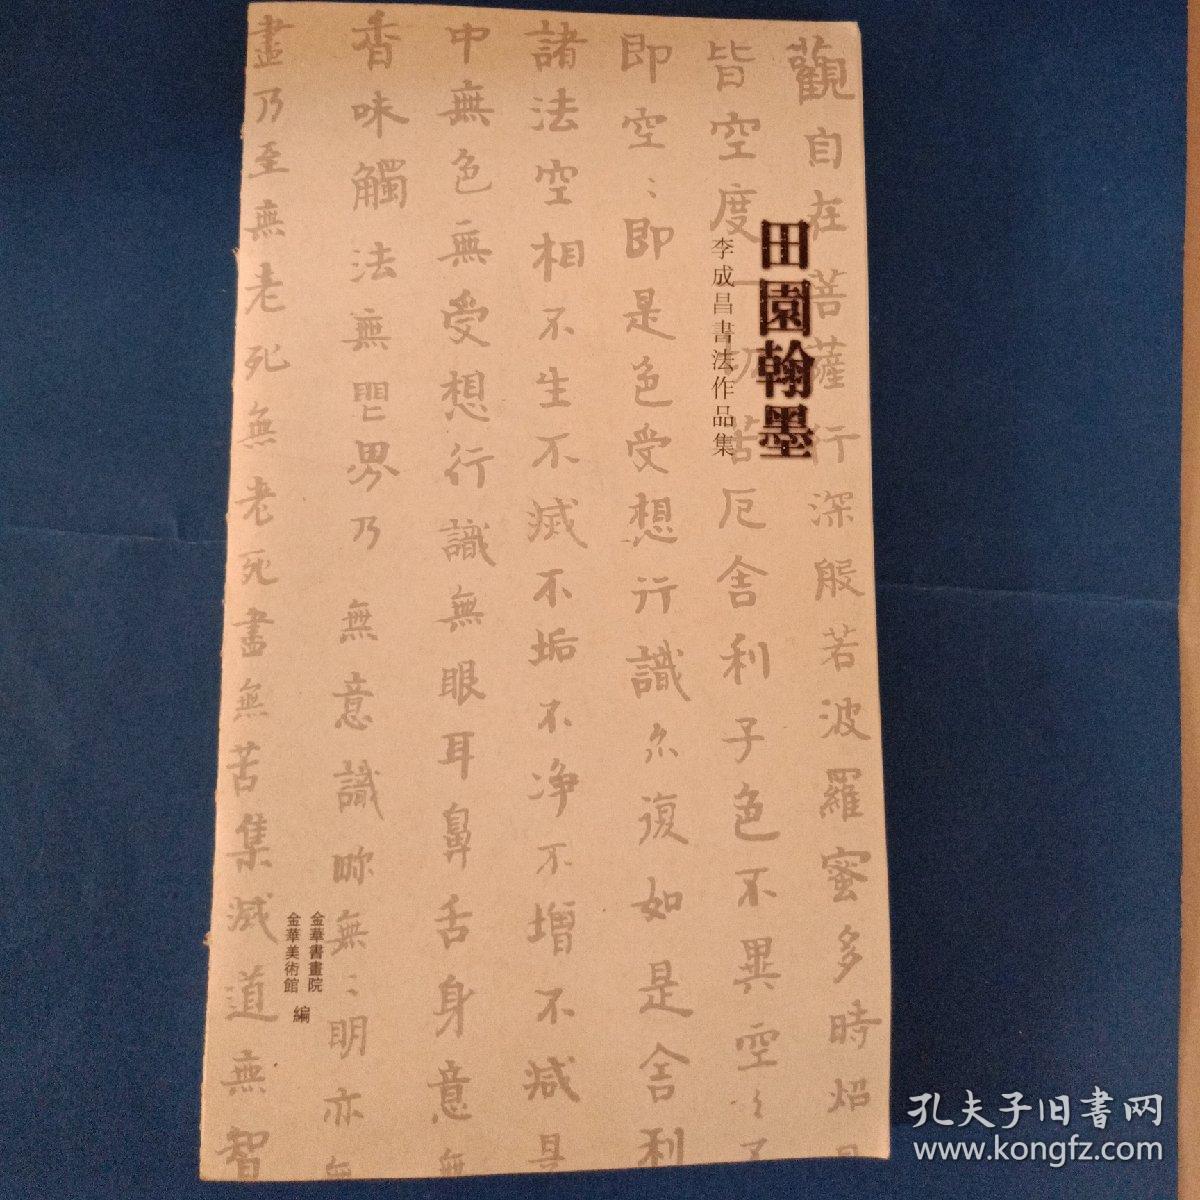 觀自在菩薩行深般若波羅蜜多時炤見
皆空度一切苦厄舍利子色不異空〻不
即空〻即是色受想行識亦復如是舍利
諸法空相不生不滅不垢不净不增不减是
中無色無受想行識無眼耳鼻舌身意無
香味觸法無眼界乃無意識界無〻明亦無
盡乃至無老死無老死盡無苦集滅道無智
田園翰墨
李成昌書法作品集
金華書畫院
金華美術館
編
孔夫子旧书网
www.kongfz.com